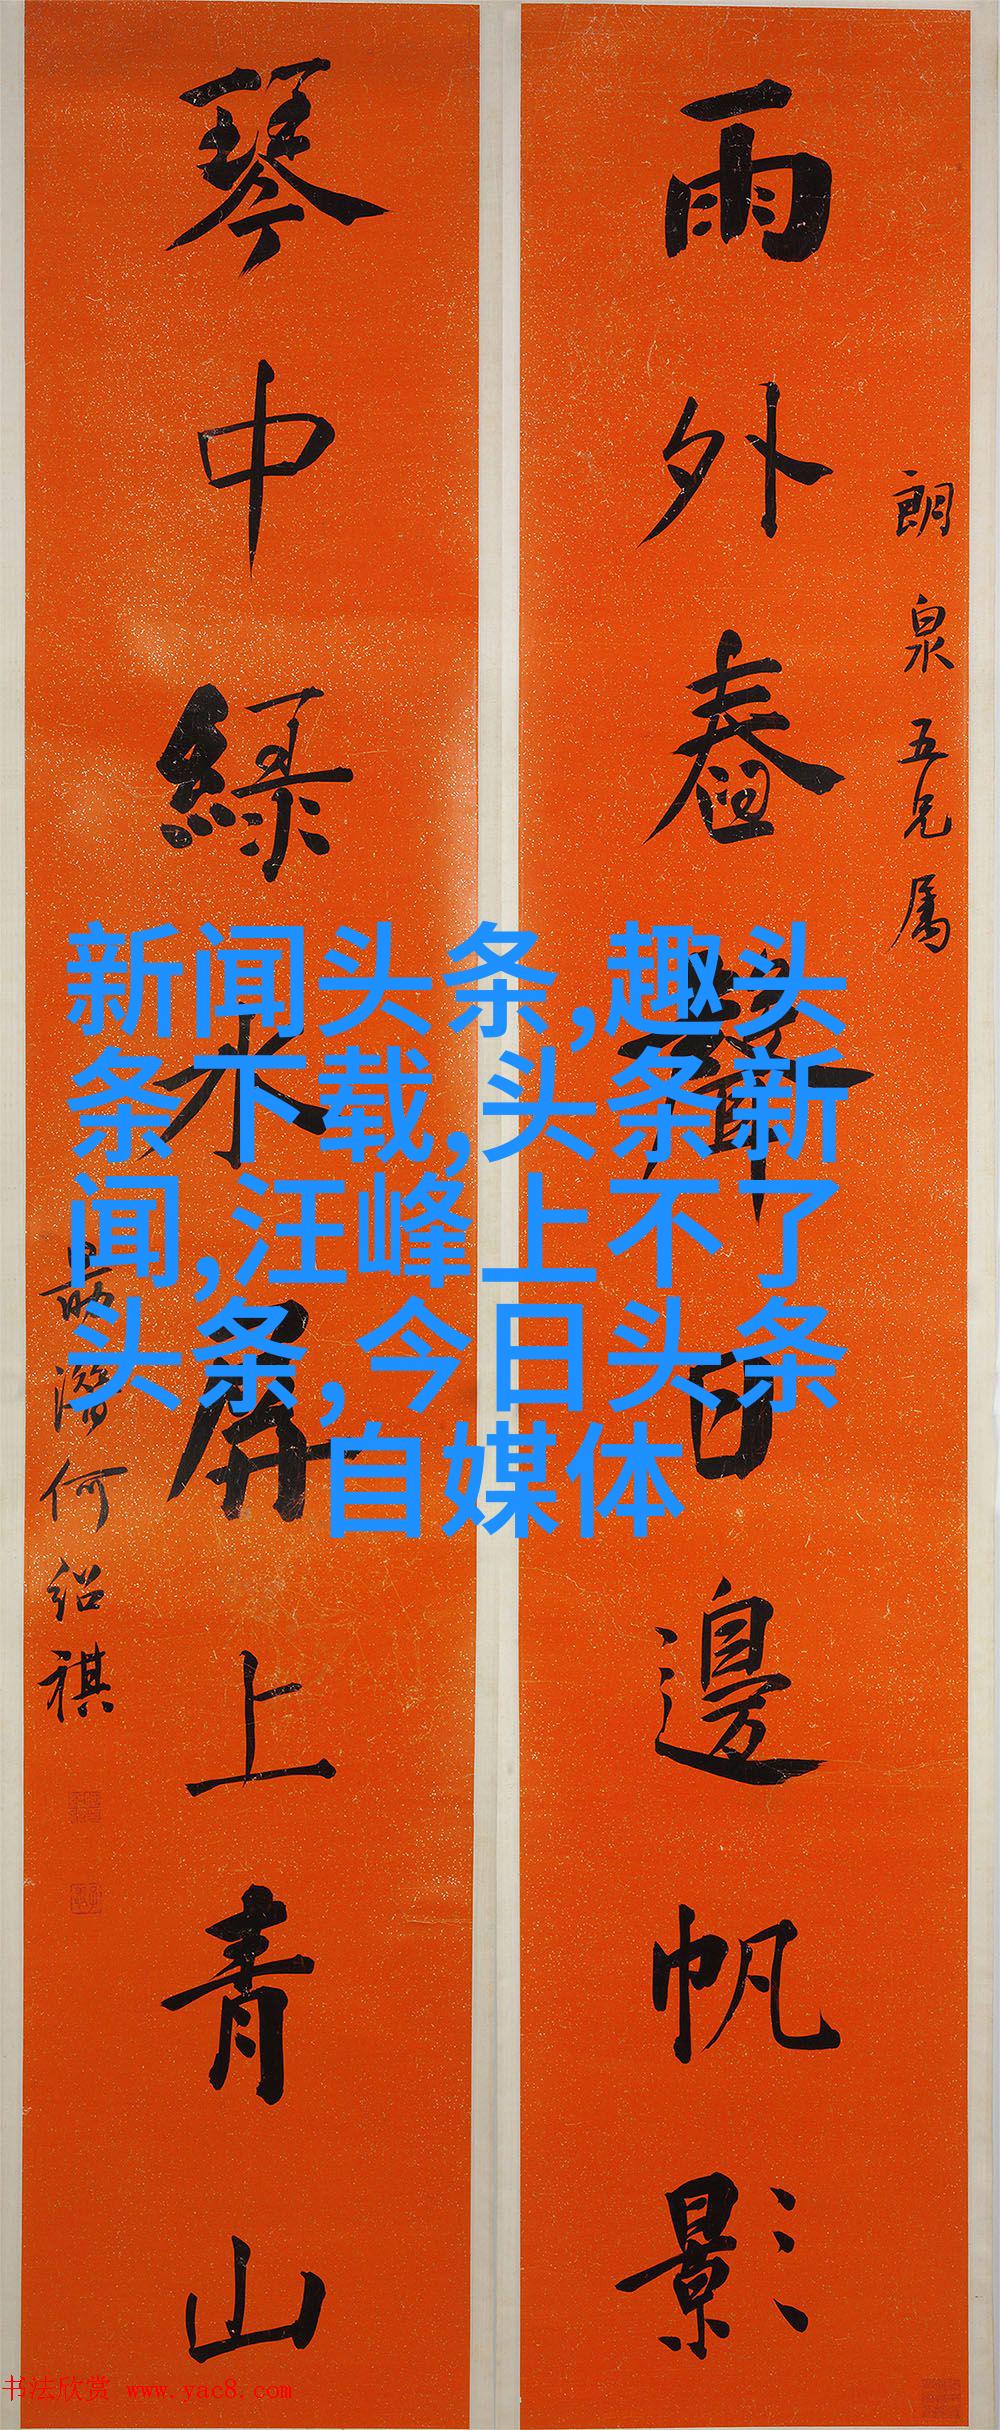 雨外舂聲日邊帆影
朗泉五兄属
琴中綠水屏上青山
勗潛何紹祺
新闻头条,趣头
条下载,头条新
闻,汪峰上不了
头条,今日头条
自媒体
书法欣赏 www.yac8.com